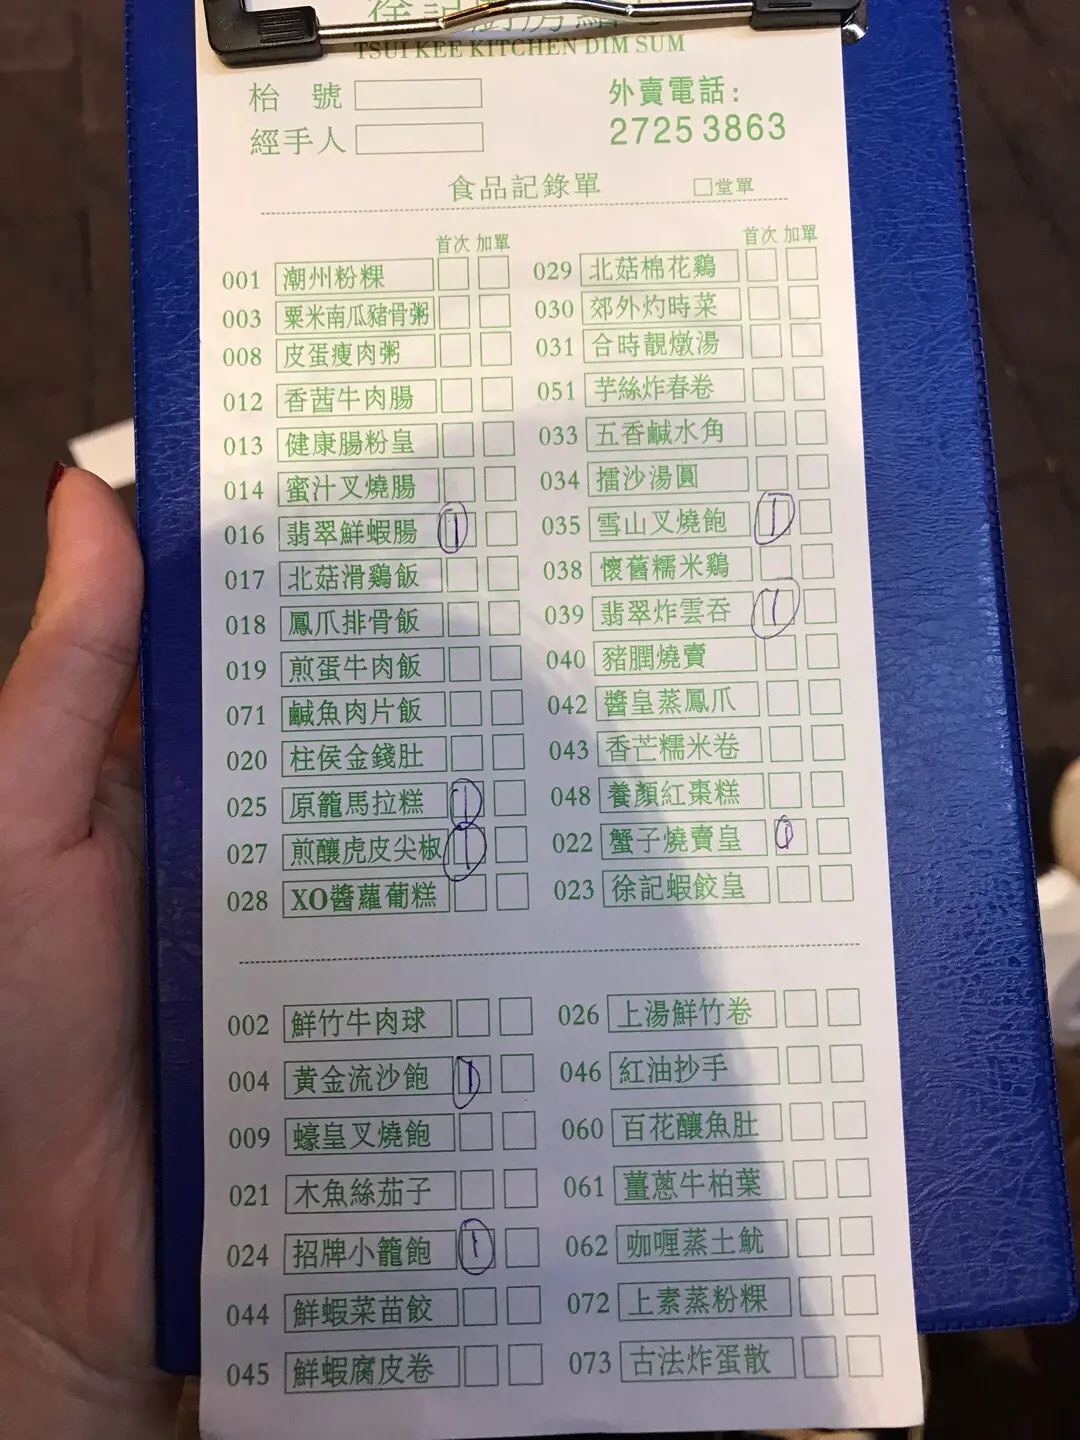 徐記廚房點心
TSUI KEE KITCHEN DIM SUM
枱 號
外賣電話:
經手人
2725 3863
食品記錄單
堂單
首次 加單
首次 加單
001 潮州粉粿
003 粟米南瓜豬骨粥
008 皮蛋瘦肉粥
012 香茜牛肉腸
013 健康腸粉皇
014 蜜汁叉燒腸
016 翡翠鮮蝦腸 1
017 北菇滑鷄飯
018 鳳爪排骨飯
019 煎蛋牛肉飯
071 鹹魚肉片飯
020 柱侯金錢肚
025 原籠馬拉糕 1
027 煎釀虎皮尖椒 1
028 XO醬蘿蔔糕
029 北菇棉花鷄
030 郊外灼時菜
031 合時靚燉湯
051 芋絲炸春卷
033 五香鹹水角
034 擂沙湯圓
035 雪山叉燒飽 1
038 懷舊糯米鷄
039 翡翠炸雲吞 1
040 豬膶燒賣
042 醬皇蒸鳳爪
043 香芒糯米卷
048 養顏紅棗糕
022 蟹子燒賣皇 1
023 徐記蝦餃皇
002 鮮竹牛肉球
004 黃金流沙飽 1
009 蠔皇叉燒飽
021 木魚絲茄子
024 招牌小籠飽 1
044 鮮蝦菜苗餃
045 鮮蝦腐皮卷
026 上湯鮮竹卷
046 紅油抄手
060 百花釀魚肚
061 薑蔥牛柏葉
062 咖喱蒸土魷
072 上素蒸粉粿
073 古法炸蛋散